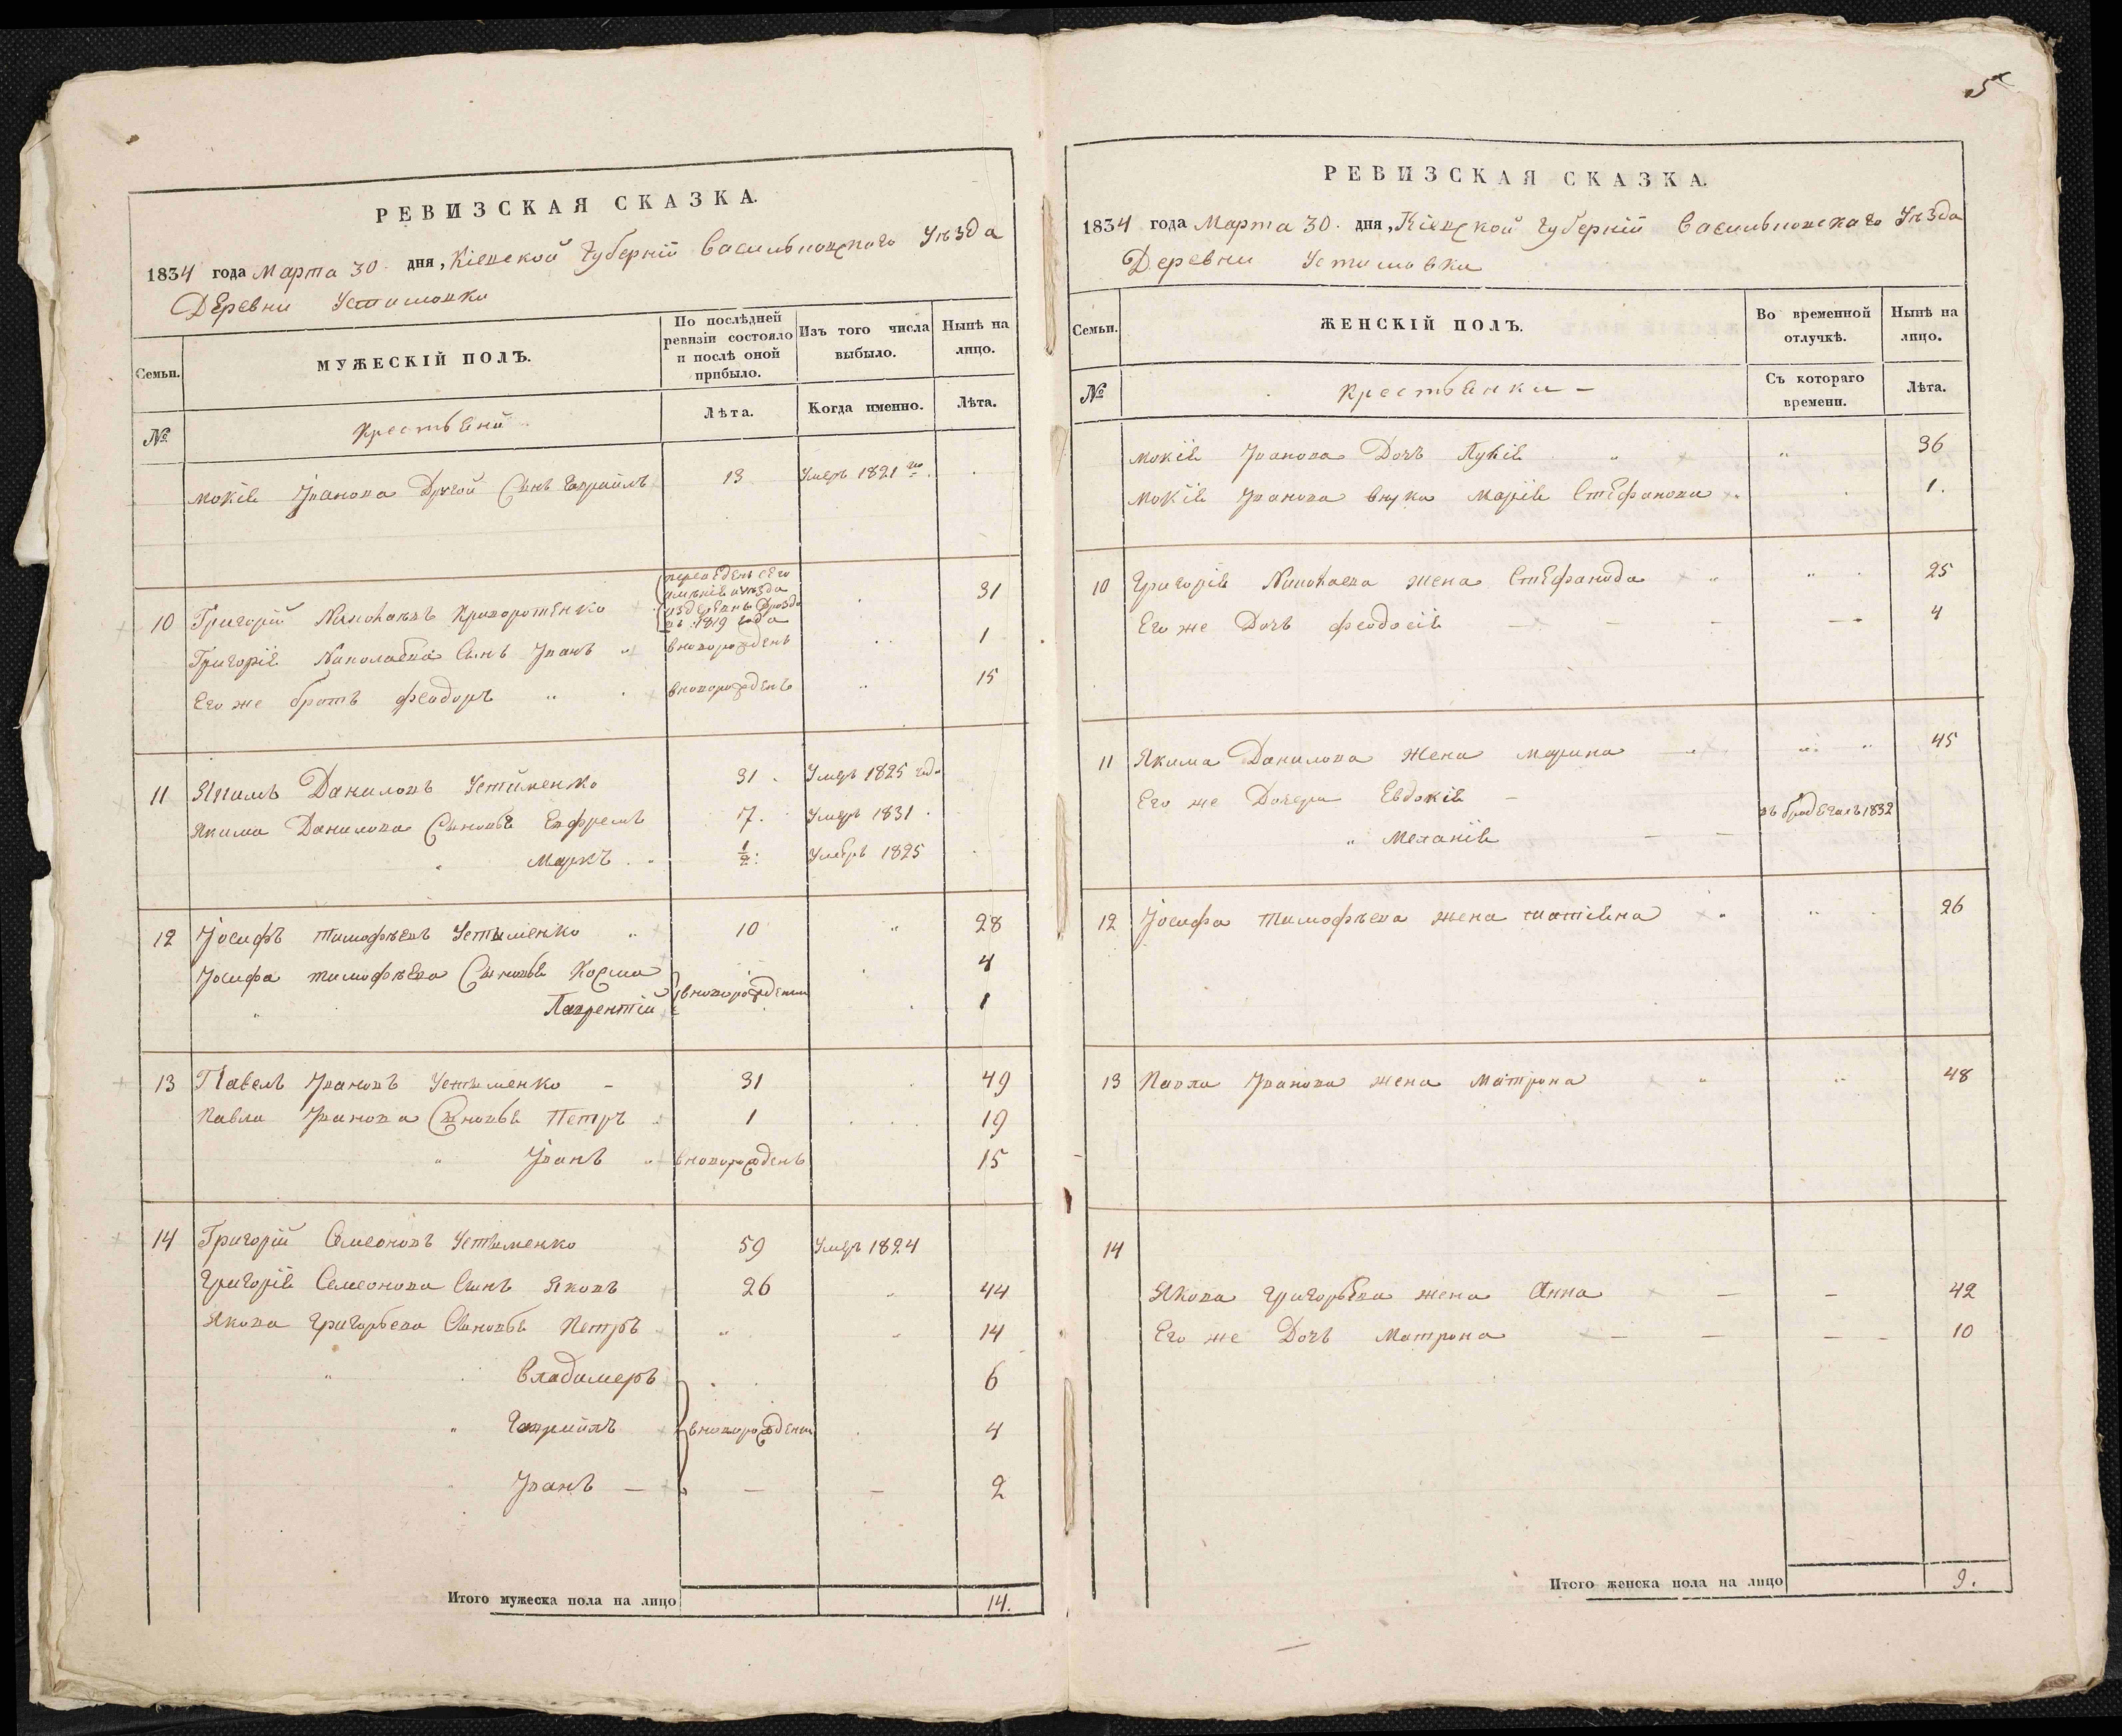 РЕВИЗСКАЯ СКАЗКА.
1834 года Марта 30. дня, Кіевской Губерніи Васильковскаго Уѣзда
Деревни Устимовки
Семьи.
МУЖЕСКІЙ ПОЛЪ.
По послѣдней ревизіи состояло и послѣ оной прибыло.
Изъ того числа выбыло.
Нынѣ на лицо.
№
Крестьяни
Лѣта.
Когда именно.
Лѣта.
Мокія Іванова Другой Сынъ Гавріилъ 13 Умеръ 1821 го
10 Григорій Николаевъ Криворотенко 31
въ 1819 года
Григорія Николаева Сынъ Іванъ " вноворожденъ 1
Его же братъ Феодоръ " вноворожденъ " 15
11 Якимъ Даниловъ Устименко 31. Умеръ 1825 год.
Якима Данилова Сыновья Евфремъ 7. Умеръ 1831.
" Маркъ. 1/2. Умеръ 1825
12 Іосифъ Тимофѣевъ Устименко " 10 " 28
Іосифа Тимофѣева Сыновья Косма 4
" Лаврентій вноворождении 1
13 Павелъ Івановъ Устименко - 31 49
Павла Іванова Сыновья Петръ 1 19
" Іванъ " вноворожденъ 15
14 Григорій Семеоновъ Устименко 59 Умеръ 1824
Григорія Семеонова Сынъ Яковъ 26 " 44
Якова Григорьева Сыновья Петръ " " 14
" Владимеръ 6
" Гавріилъ вноворождении 4
" Іванъ — — — 2
Итого мужеска пола на лицо 14.
5
РЕВИЗСКАЯ СКАЗКА.
1834 года Марта 30. дня, Кіевской Губерніи Васильковскаго Уѣзда
Деревни Устимовки
Семьи.
ЖЕНСКІЙ ПОЛЪ.
Во временной отлучкѣ.
Нынѣ на лицо.
№
Крестьянки —
Съ котораго времени.
Лѣта.
Мокія Іванова Дочь Лукія " " 36
Мокія Іванова внука Марія Стефанова 1.
10 Григорія Николаева жена Стефанида " " 25
Его же Дочь Феодосія — — — — 4
11 Якима Данилова Жена Марина — " " 45
Его же Дочери Евдокія —
" Меланія — — 1832
12 Іосифа Тимофѣева жена Татіяна " " 26
13 Павла Іванова жена Матрона " " 48
14
Якова Григорьева жена Анна — — 42
Его же Дочь Матрона — — — — 10
Итого женска пола на лицо 9.